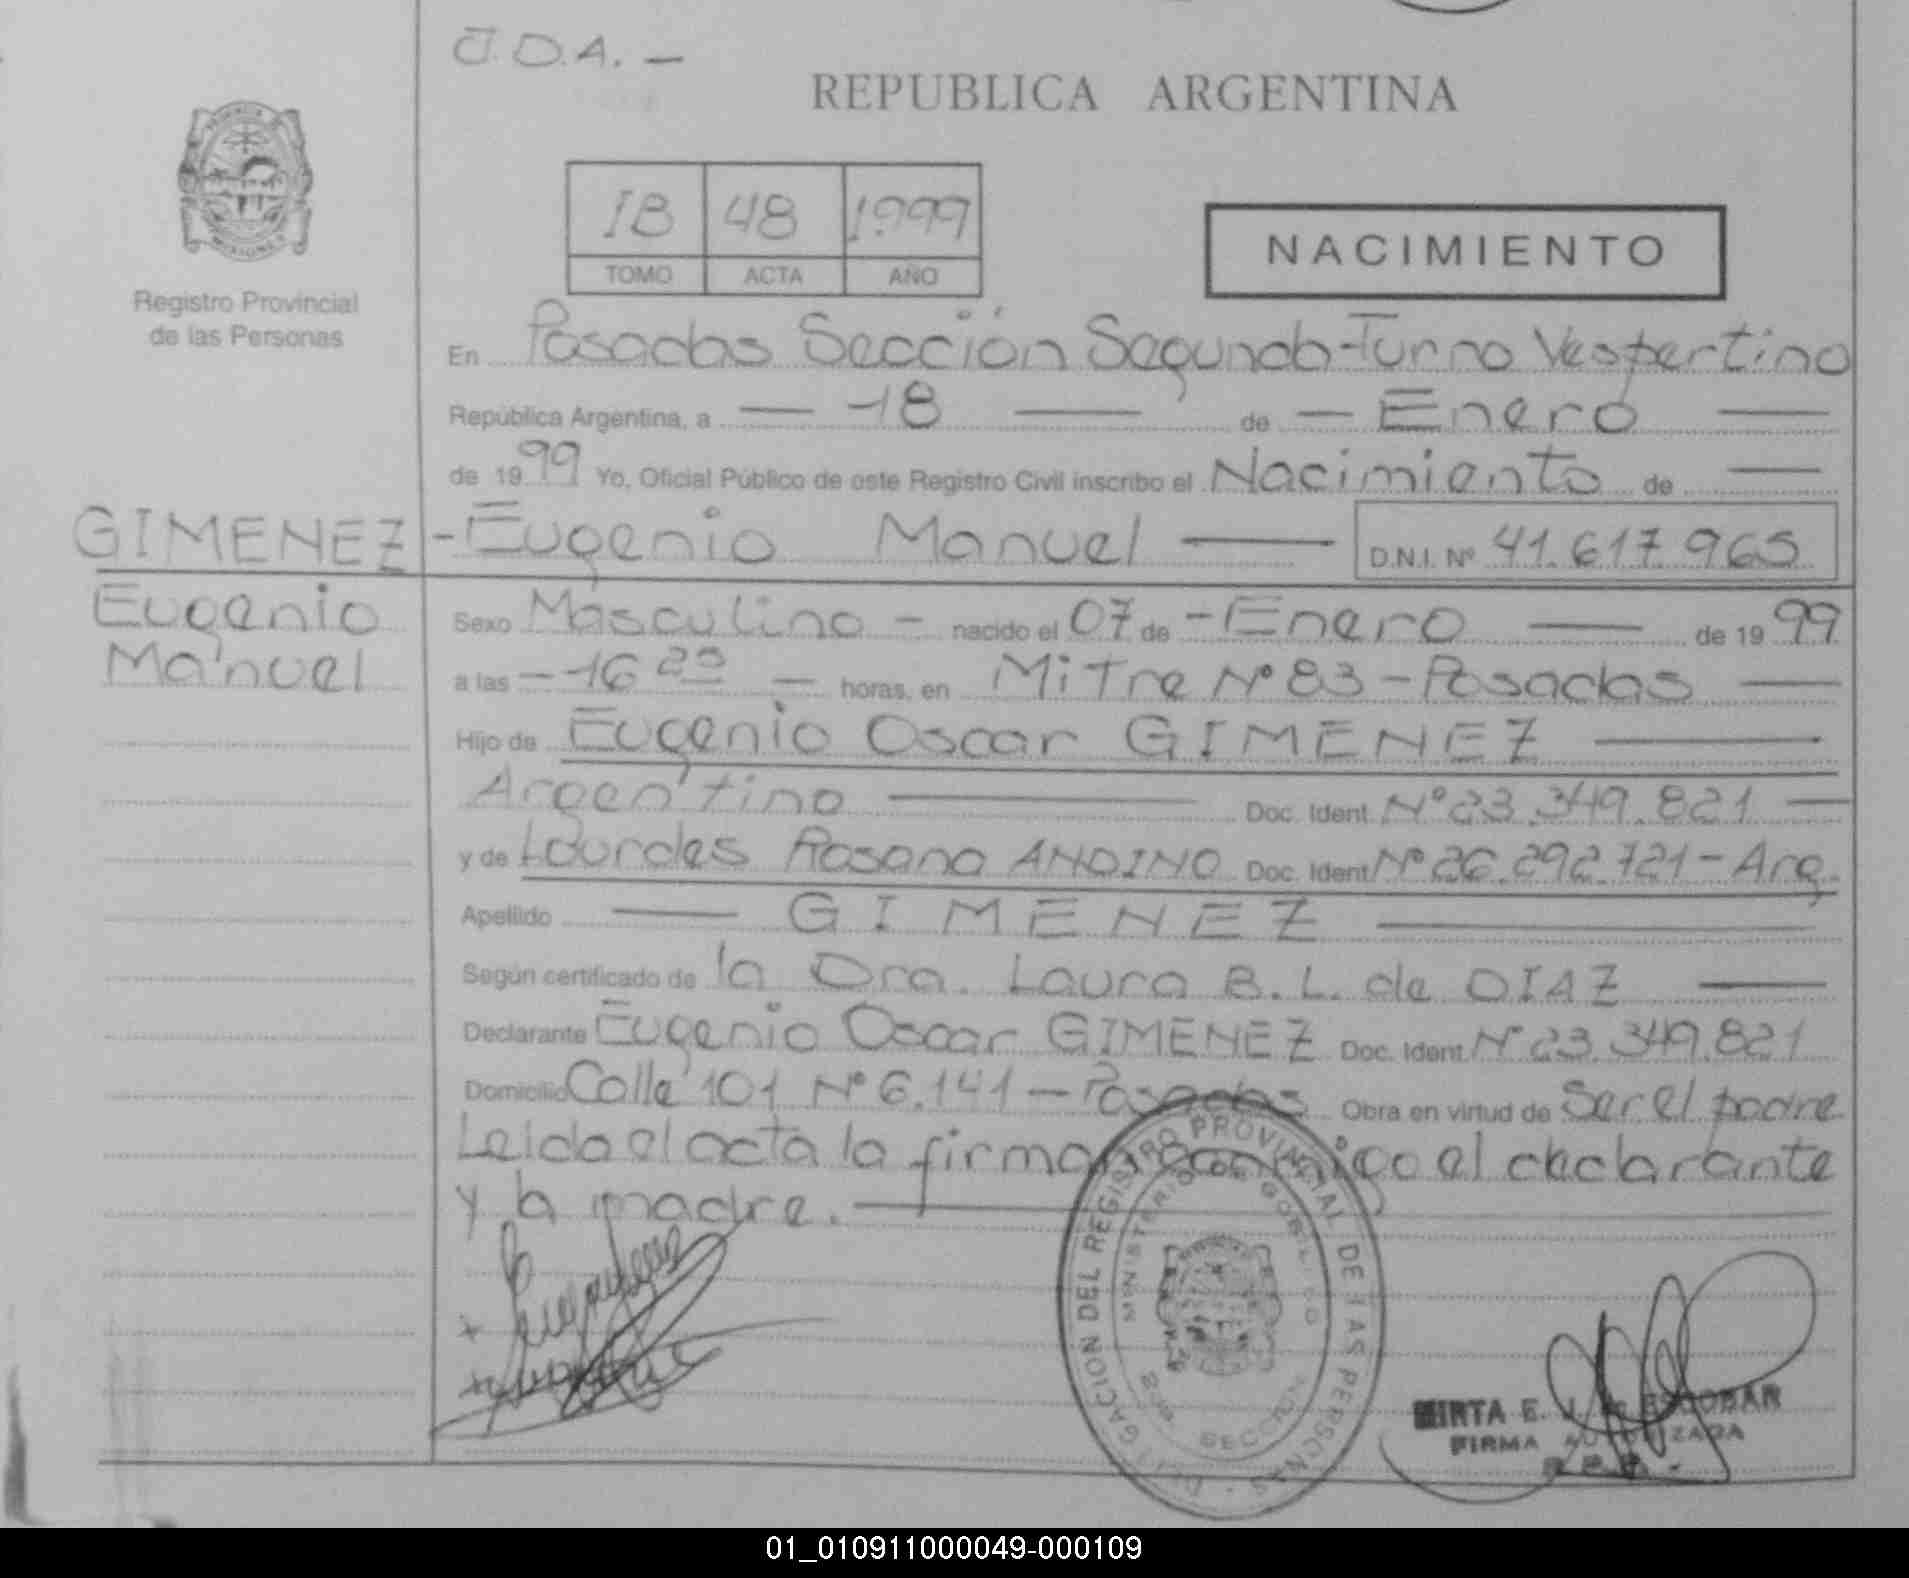 J.D.A. —
REPUBLICA ARGENTINA
IB 48 1999
TOMO ACTA AÑO
NACIMIENTO
Registro Provincial
de las Personas
En Posadas Sección Segunda-Turno Vespertino
República Argentina, a — 18 — de — Enero —
de 1999 Yo, Oficial Público de este Registro Civil inscribo el Nacimiento de —
GIMENEZ - Eugenio Manuel — D.N.I. Nº 41.617.965
Eugenio
Manuel
Sexo Masculino - nacido el 07 de - Enero — de 1999
a las — 16 20 — horas, en Mitre Nº 83 - Posadas —
Hijo de Eugenio Oscar GIMENEZ —
Argentino — Doc. Ident. Nº 23.349.821 —
y de Lourdes Rosana ANDINO Doc. Ident. Nº 26.292.721 - Arg.
Apellido — GIMENEZ —
Según certificado de la Dra. Laura B. L. de DIAZ —
Declarante Eugenio Oscar GIMENEZ Doc. Ident. Nº 23.349.821
Domicilio Calle 101 Nº 6.141 - Posadas Obra en virtud de Ser el padre
Leida el acta la firman conmigo el declarante
y la madre. —
DELEGACION DEL REGISTRO PROVINCIAL DE LAS PERSONAS
MINISTERIO DE GOBIERNO
2da SECCION
MIRTA E. J. de ESCOBAR
FIRMA AUTORIZADA
01_010911000049-000109